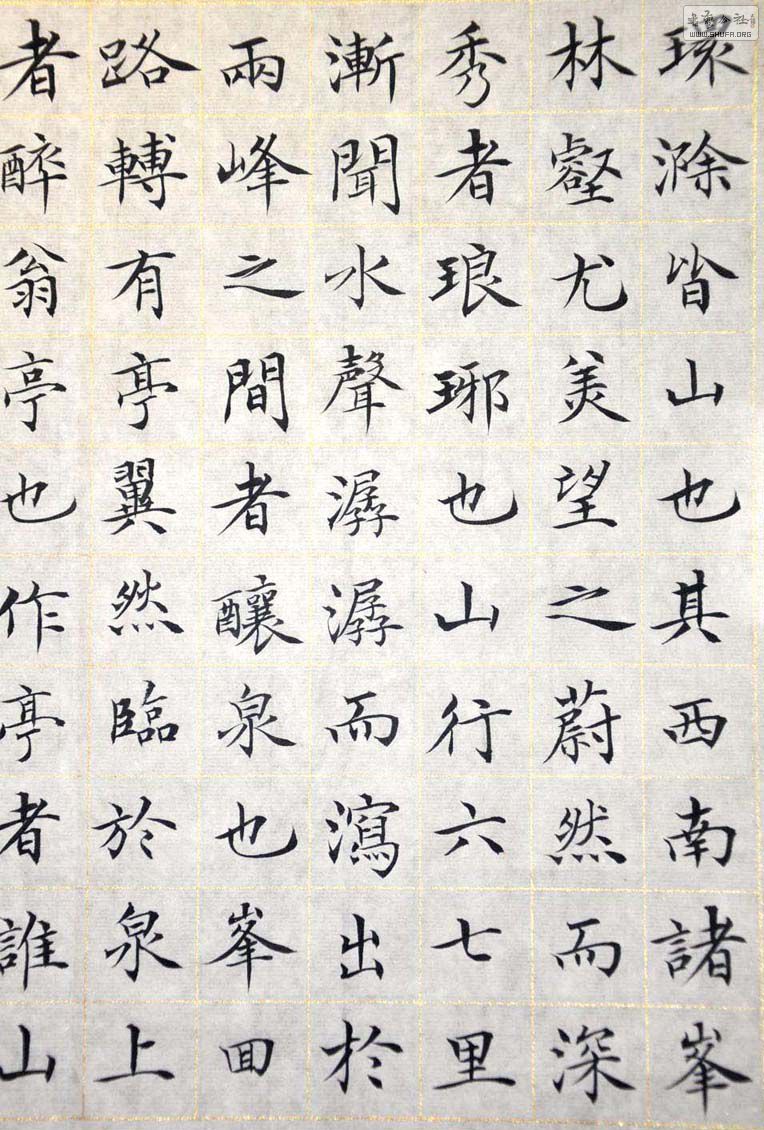 環滁皆山也其西南諸峯
林壑尤美望之蔚然而深
秀者琅琊也山行六七里
漸聞水聲潺潺而瀉出於
兩峰之間者釀泉也峯回
路轉有亭翼然臨於泉上
者醉翁亭也作亭者誰山
WWW.SHUFA.ORG